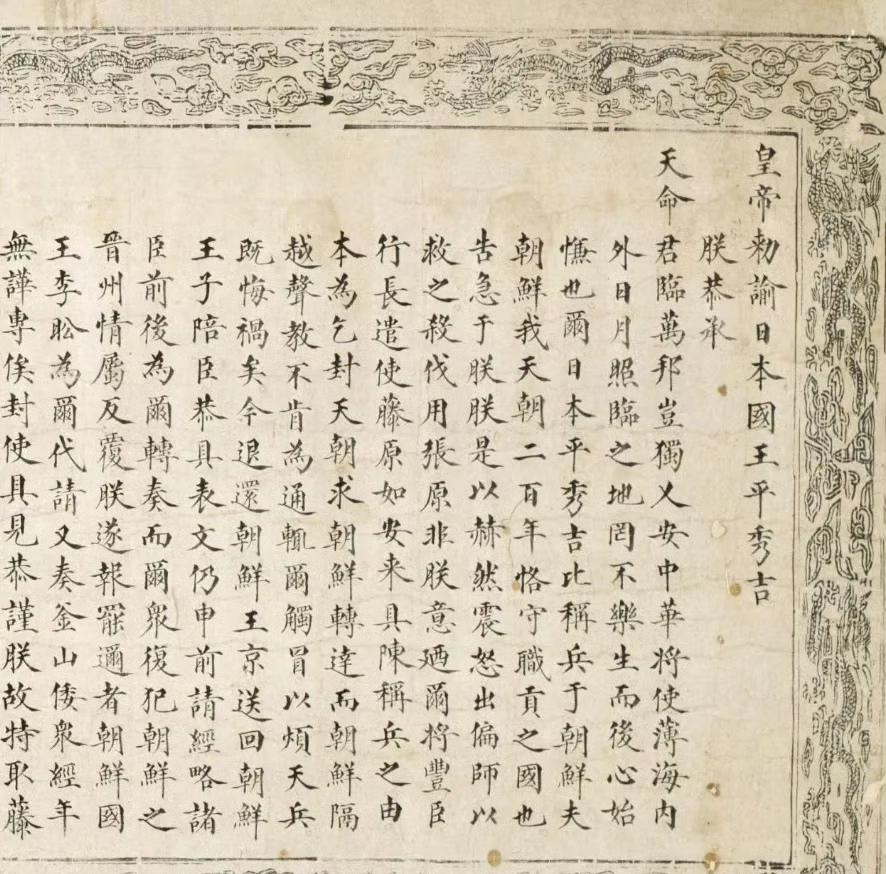 皇帝勑諭日本國王平秀吉
朕恭承
天命君臨萬邦豈獨乂安中華将使薄海内
外日月照臨之地罔不樂生而後心始
慊也爾日本平秀吉比稱兵于朝鮮夫
朝鮮我天朝二百年恪守職貢之國也
告急于朕朕是以赫然震怒出偏師以
救之殺伐用張原非朕意廼爾将豐臣
行長遣使藤原如安来具陳稱兵之由
本為乞封天朝求朝鮮轉達而朝鮮隔
越聲教不肯為通輒爾觸冒以煩天兵
既悔禍矣今退還朝鮮王京送回朝鮮
王子陪臣恭具表文仍申前請經略諸
臣前後為爾轉奏而爾衆復犯朝鮮之
晉州情屬反覆朕遂報罷邇者朝鮮國
王李昖為爾代請又奏釜山倭衆經年
無譁專俟封使具見恭謹朕故特取藤